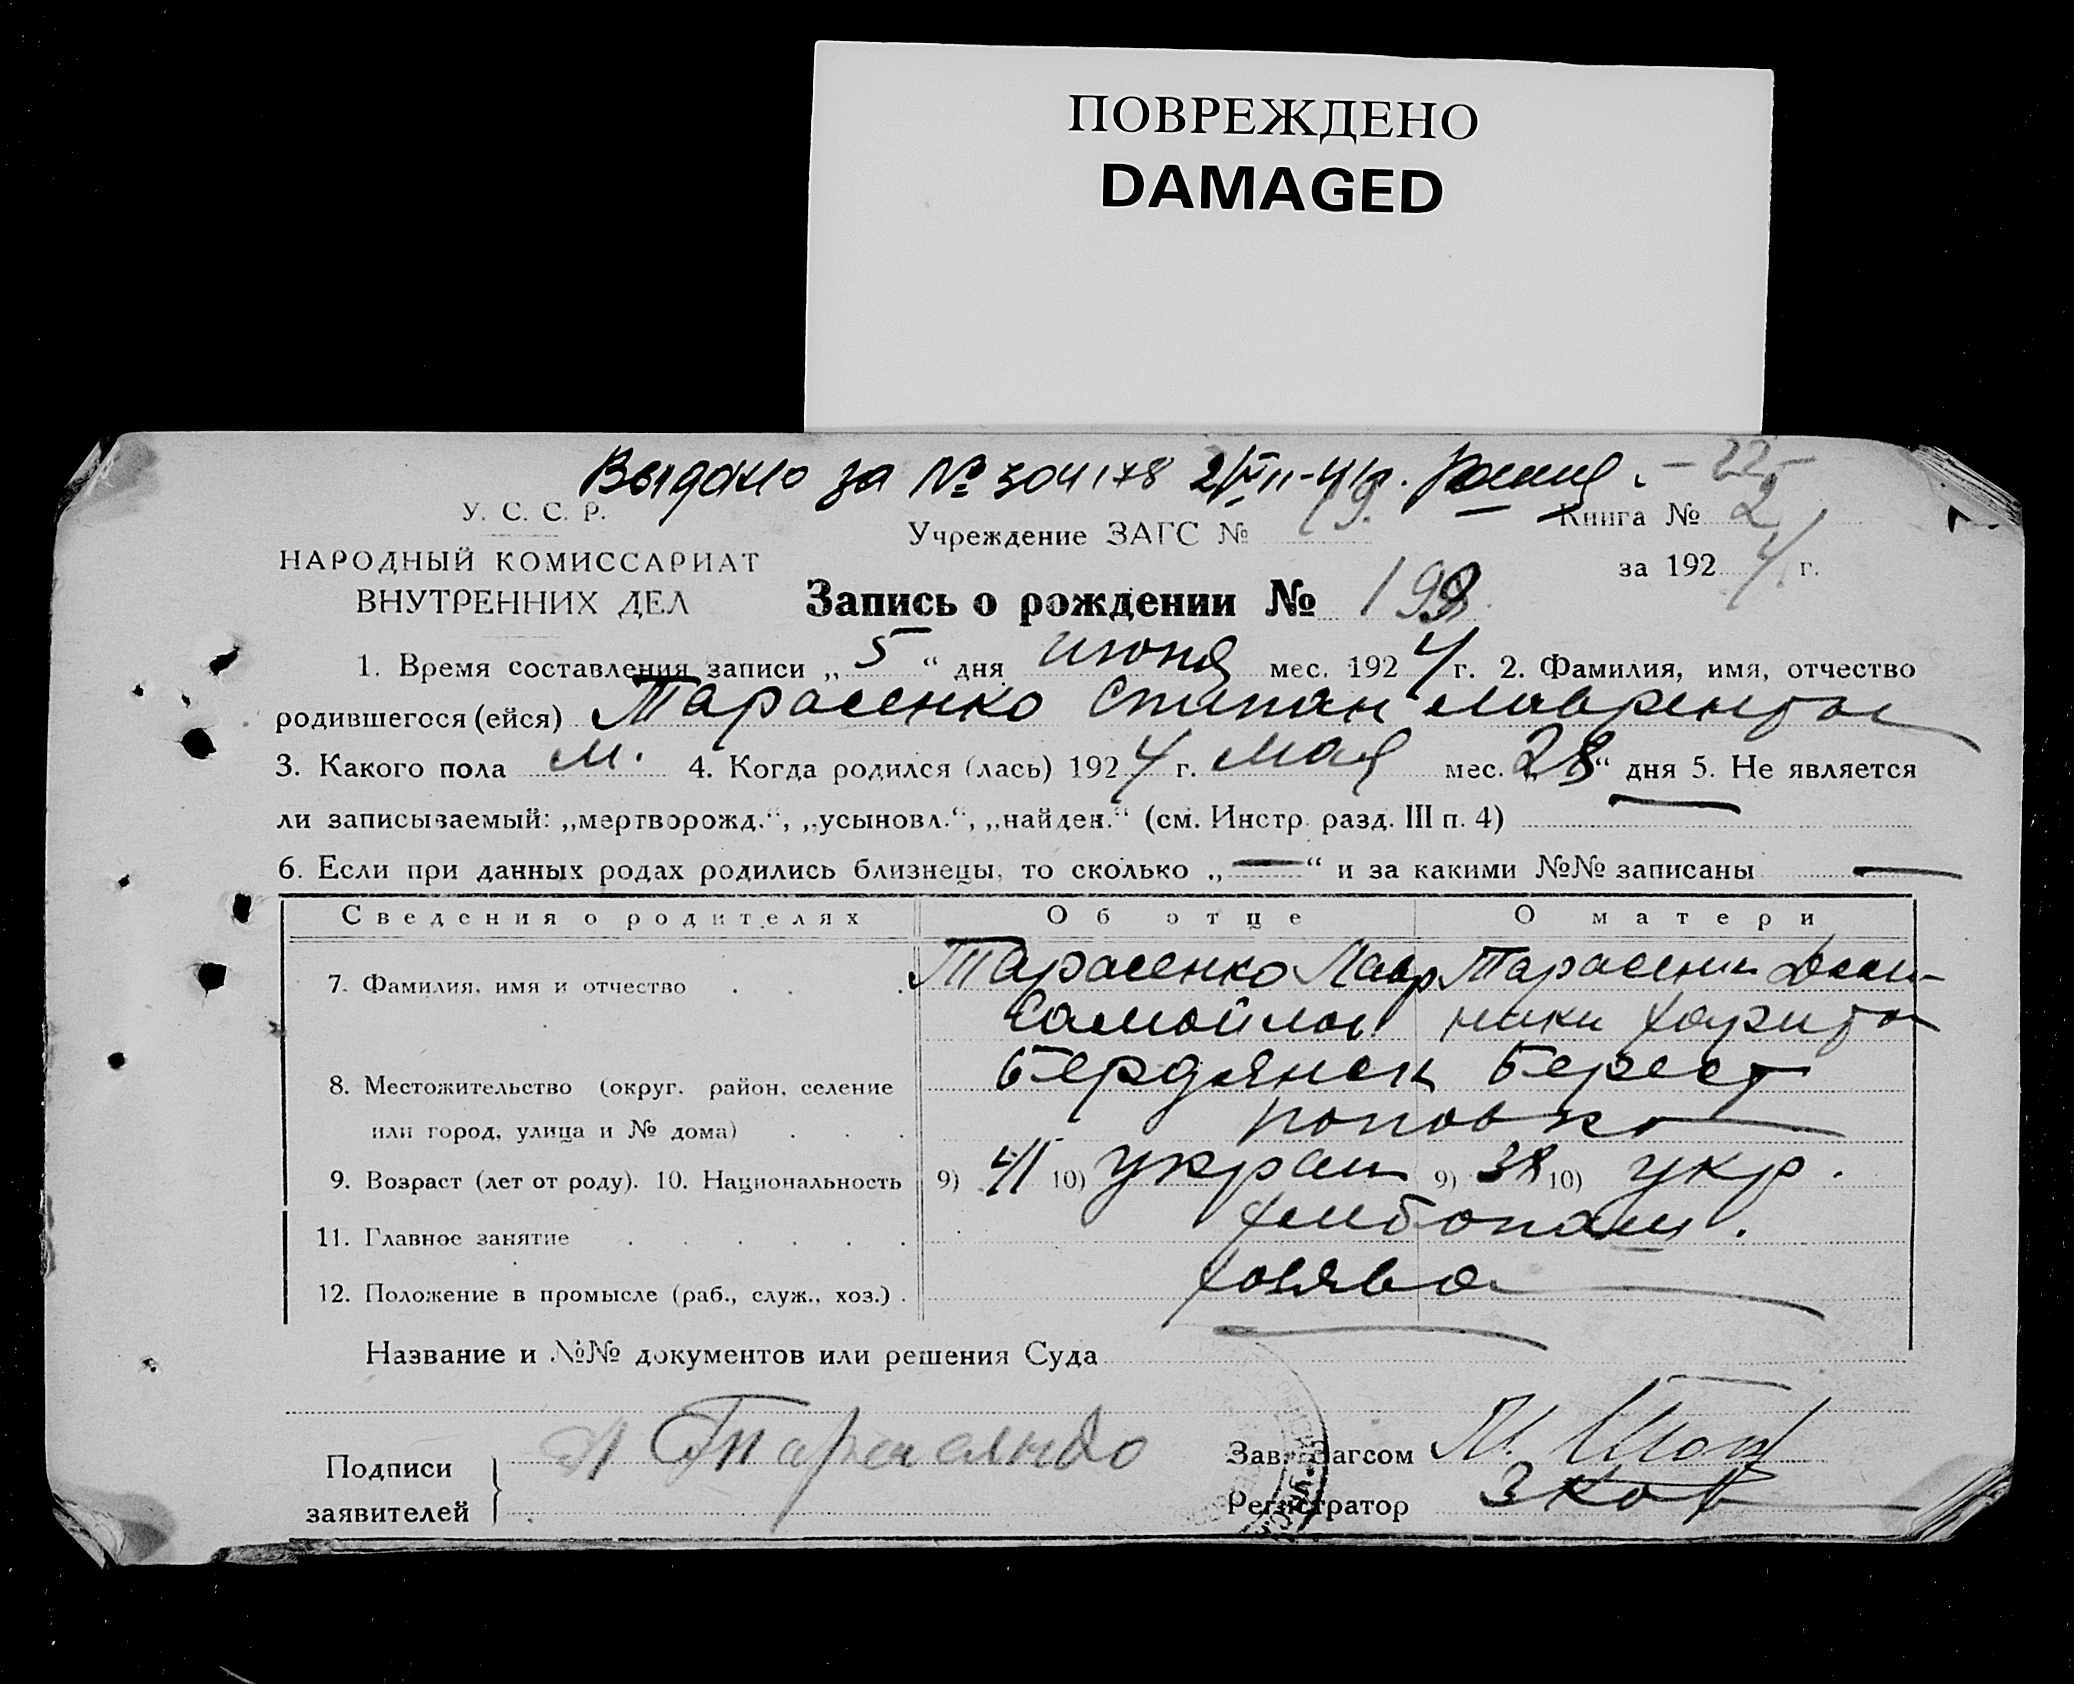 ПОВРЕЖДЕНО
DAMAGED
Выдано за № 304178
-22-
У. С. С. Р.
Учреждение ЗАГС № 19.
Книга № 2
НАРОДНЫЙ КОМИССАРИАТ
за 1924 г.
ВНУТРЕННИХ ДЕЛ
Запись о рождении № 199
1. Время составления записи „5“ дня июня мес. 1924 г. 2. Фамилия, имя, отчество
родившегося (ейся) Тарасенко Степан Лаврентов
3. Какого пола м. 4. Когда родился (лась) 1924 г. мая мес. „28“ дня 5. Не является
ли записываемый: „мертворожд.“, „усыновл.“, „найден.“ (см. Инстр. разд. III п. 4)
6. Если при данных родах родились близнецы, то сколько „—“ и за какими №№ записаны —
Сведения о родителях Об отце О матери
7. Фамилия, имя и отчество Тарасенко Лавр Тарасенко
Самойлов Харитон
8. Местожительство (округ, район, селение Бердянск Берест
или город, улица и № дома) поповка
9. Возраст (лет от роду). 10. Национальность 9) 41 10) украин 9) 38 10) укр.
11. Главное занятие хлебопаш.
12. Положение в промысле (раб., служ., хоз.) хозяева
Название и №№ документов или решения Суда
Подписи
заявителей
Тарасенко
Зав. Загсом
Регистратор